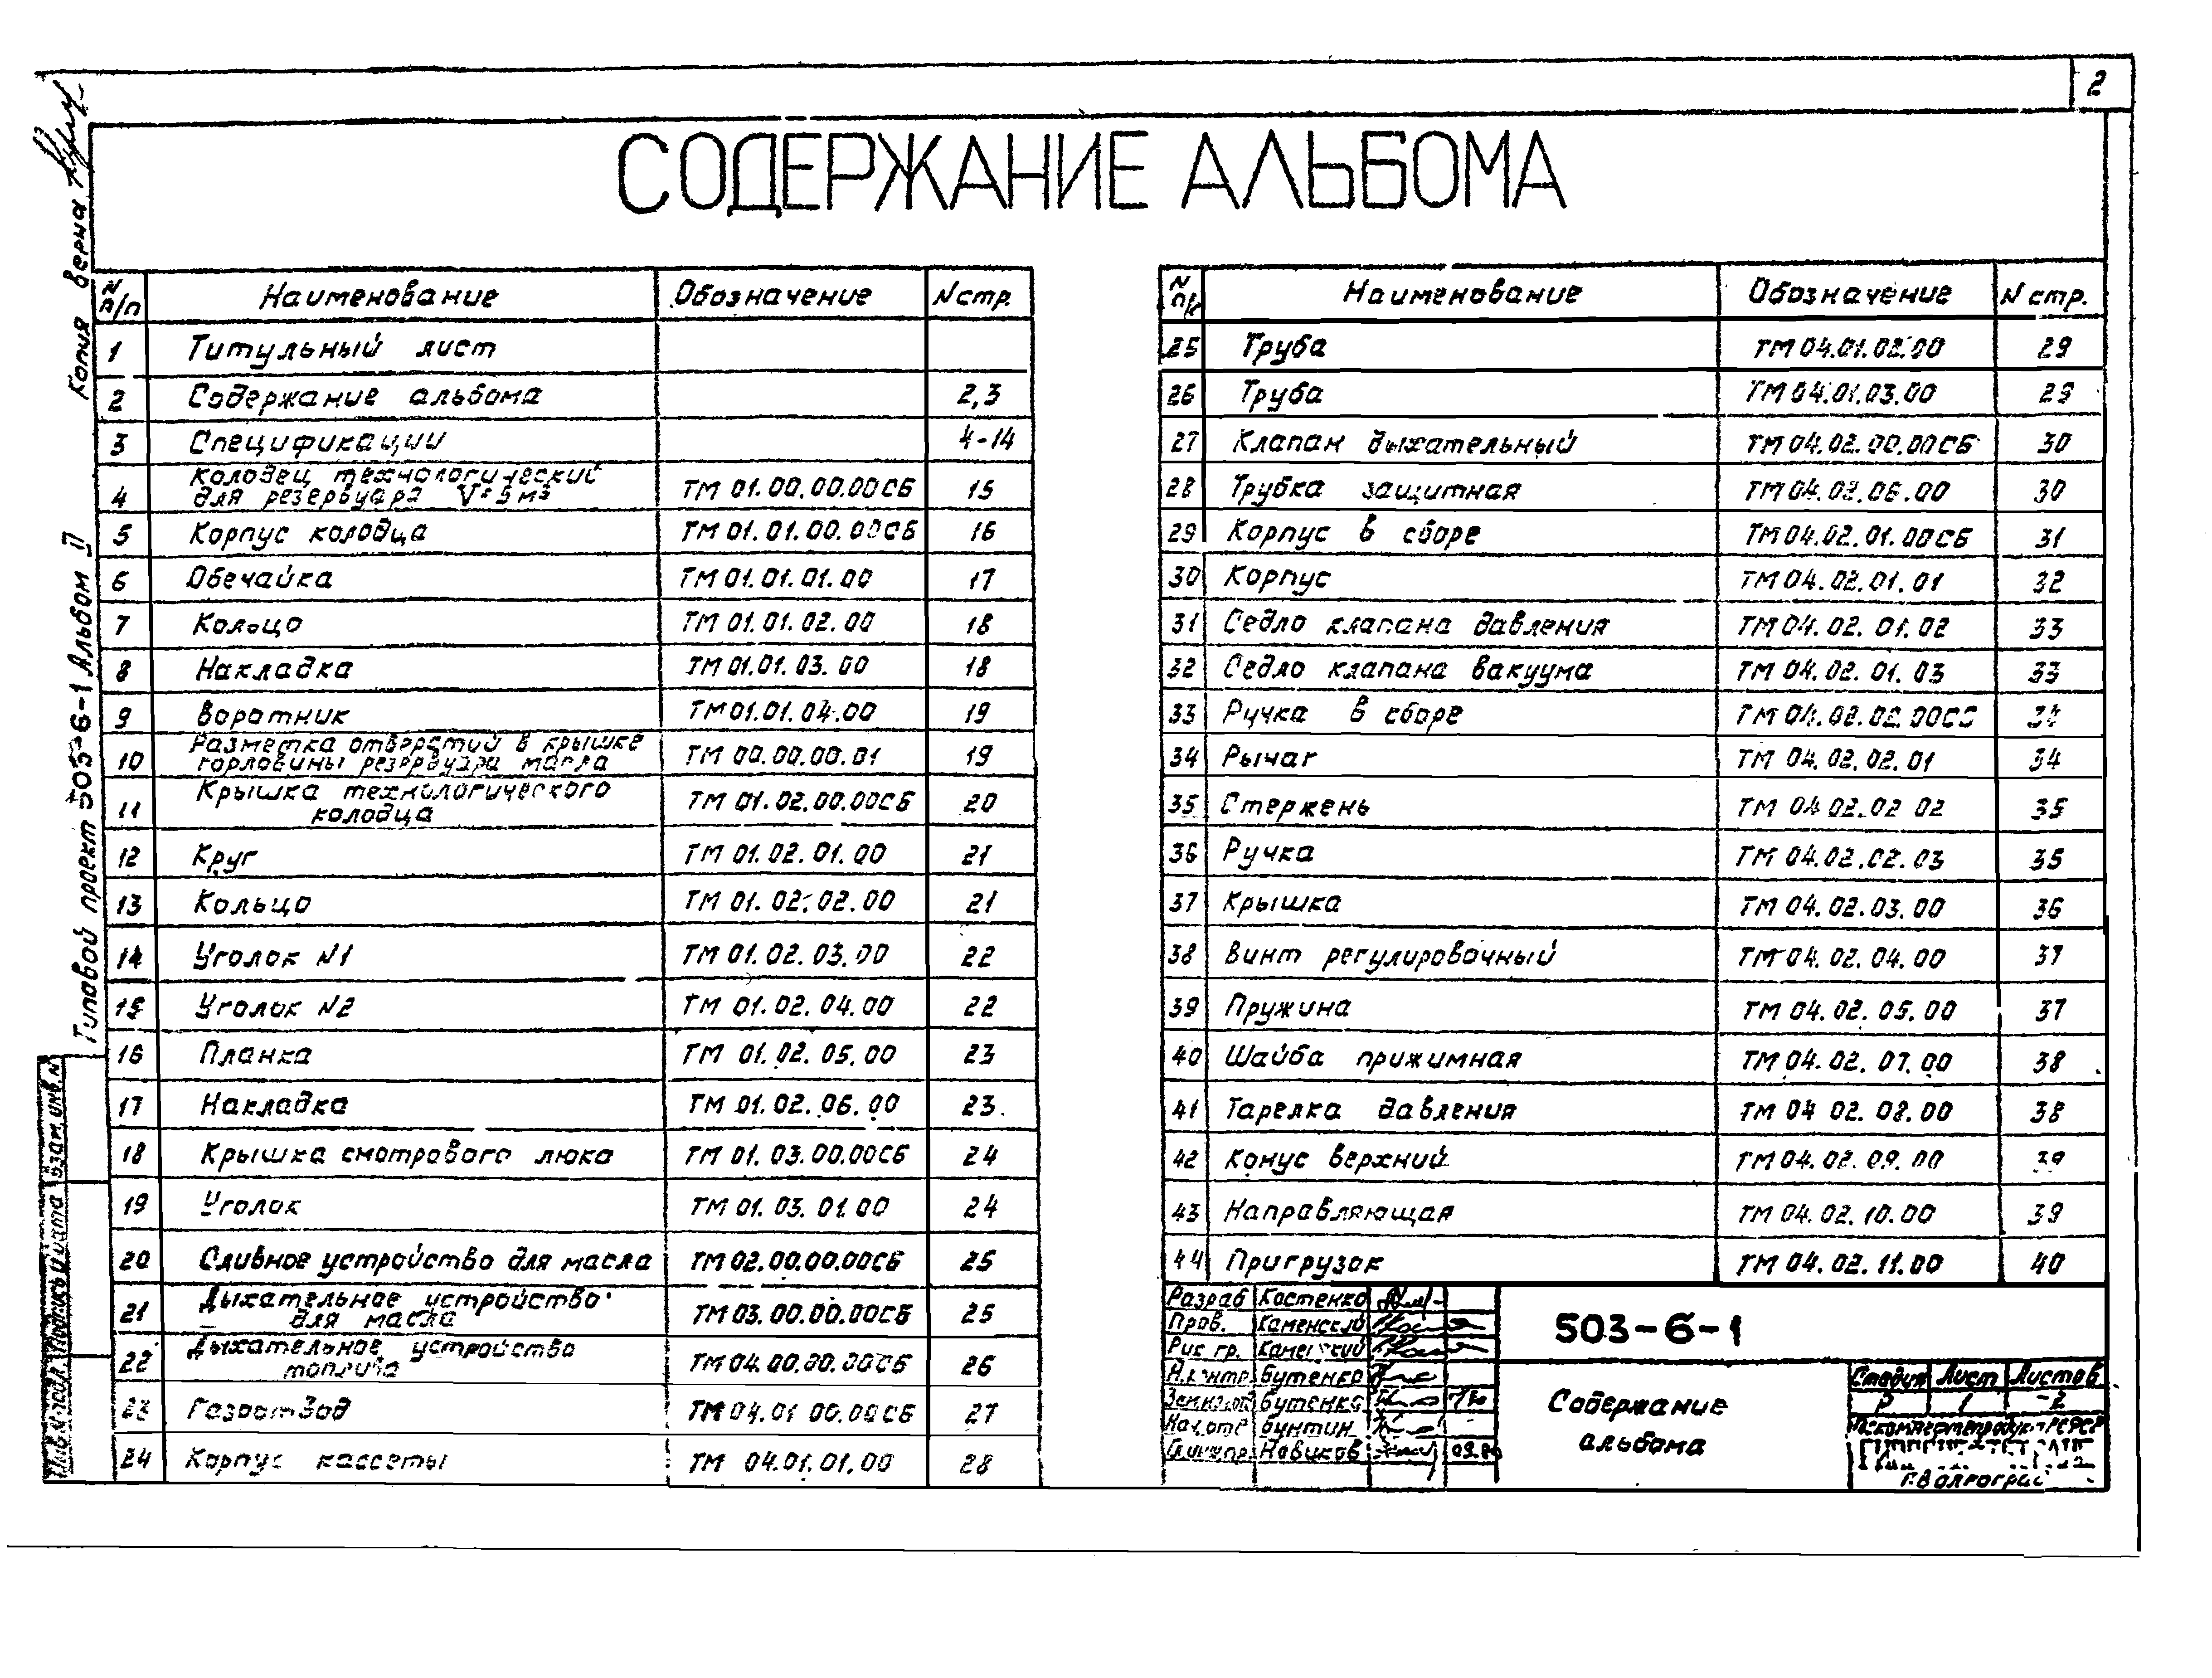 2
СОДЕРЖАНИЕ АЛЬБОМА
Копия верна
Типовой проект 503-6-1 Альбом II
N п/п Наименование Обозначение N стр.
1 Титульный лист
2 Содержание альбома 2,3
3 Спецификации 4-14
4 Колодец технологический для резервуара V=5м³ ТМ 01.00.00.00СБ 15
5 Корпус колодца ТМ 01.01.00.00СБ 16
6 Обечайка ТМ 01.01.01.00 17
7 Кольцо ТМ 01.01.02.00 18
8 Накладка ТМ 01.01.03.00 18
9 Воротник ТМ 01.01.04.00 19
10 Разметка отверстий в крышке горловины резервуара масла ТМ 00.00.00.01 19
11 Крышка технологического колодца ТМ 01.02.00.00СБ 20
12 Круг ТМ 01.02.01.00 21
13 Кольцо ТМ 01.02.02.00 21
14 Уголок N1 ТМ 01.02.03.00 22
15 Уголок N2 ТМ 01.02.04.00 22
16 Планка ТМ 01.02.05.00 23
17 Накладка ТМ 01.02.06.00 23
18 Крышка смотрового люка ТМ 01.03.00.00СБ 24
19 Уголок ТМ 01.03.01.00 24
20 Сливное устройство для масла ТМ 02.00.00.00СБ 25
21 Дыхательное устройство для масла ТМ 03.00.00.00СБ 25
22 Дыхательное устройство топлива ТМ 04.00.00.00СБ 26
23 Газоотвод ТМ 04.01 00.00СБ 27
24 Корпус кассеты ТМ 04.01.01.00 28
N п/п Наименование Обозначение N стр.
25 Труба ТМ 04.01.02.00 29
26 Труба ТМ 04.01.03.00 29
27 Клапан дыхательный ТМ 04.02.00.00СБ 30
28 Трубка защитная ТМ 04.02.06.00 30
29 Корпус в сборе ТМ 04.02.01.00СБ 31
30 Корпус ТМ 04.02.01.01 32
31 Седло клапана давления ТМ 04.02.01.02 33
32 Седло клапана вакуума ТМ 04.02.01.03 33
33 Ручка в сборе ТМ 04.02.02.00СБ 34
34 Рычаг ТМ 04.02.02.01 34
35 Стержень ТМ 04.02.02 02 35
36 Ручка ТМ 04.02.02.03 35
37 Крышка ТМ 04.02.03.00 36
38 Винт регулировочный ТМ 04.02.04.00 37
39 Пружина ТМ 04.02.05.00 37
40 Шайба прижимная ТМ 04.02.07.00 38
41 Тарелка давления ТМ 04 02.08.00 38
42 Конус верхний ТМ 04.02.09.00 39
43 Направляющая ТМ 04.02.10.00 39
44 Пригрузок ТМ 04.02.11.00 40
Разраб Костенко
Пров. Каменский
Рук гр. Каменский
Н.контр Бутенко
Бутенко
Нач.отд Бунтин
Гл.инж.пр. Новиков
503-6-1
Содержание
альбома
Стадия Лист Листов
Р 1 2
г.Волгоград
Взам. инв. N
Подпись и дата
Инв. N подл.